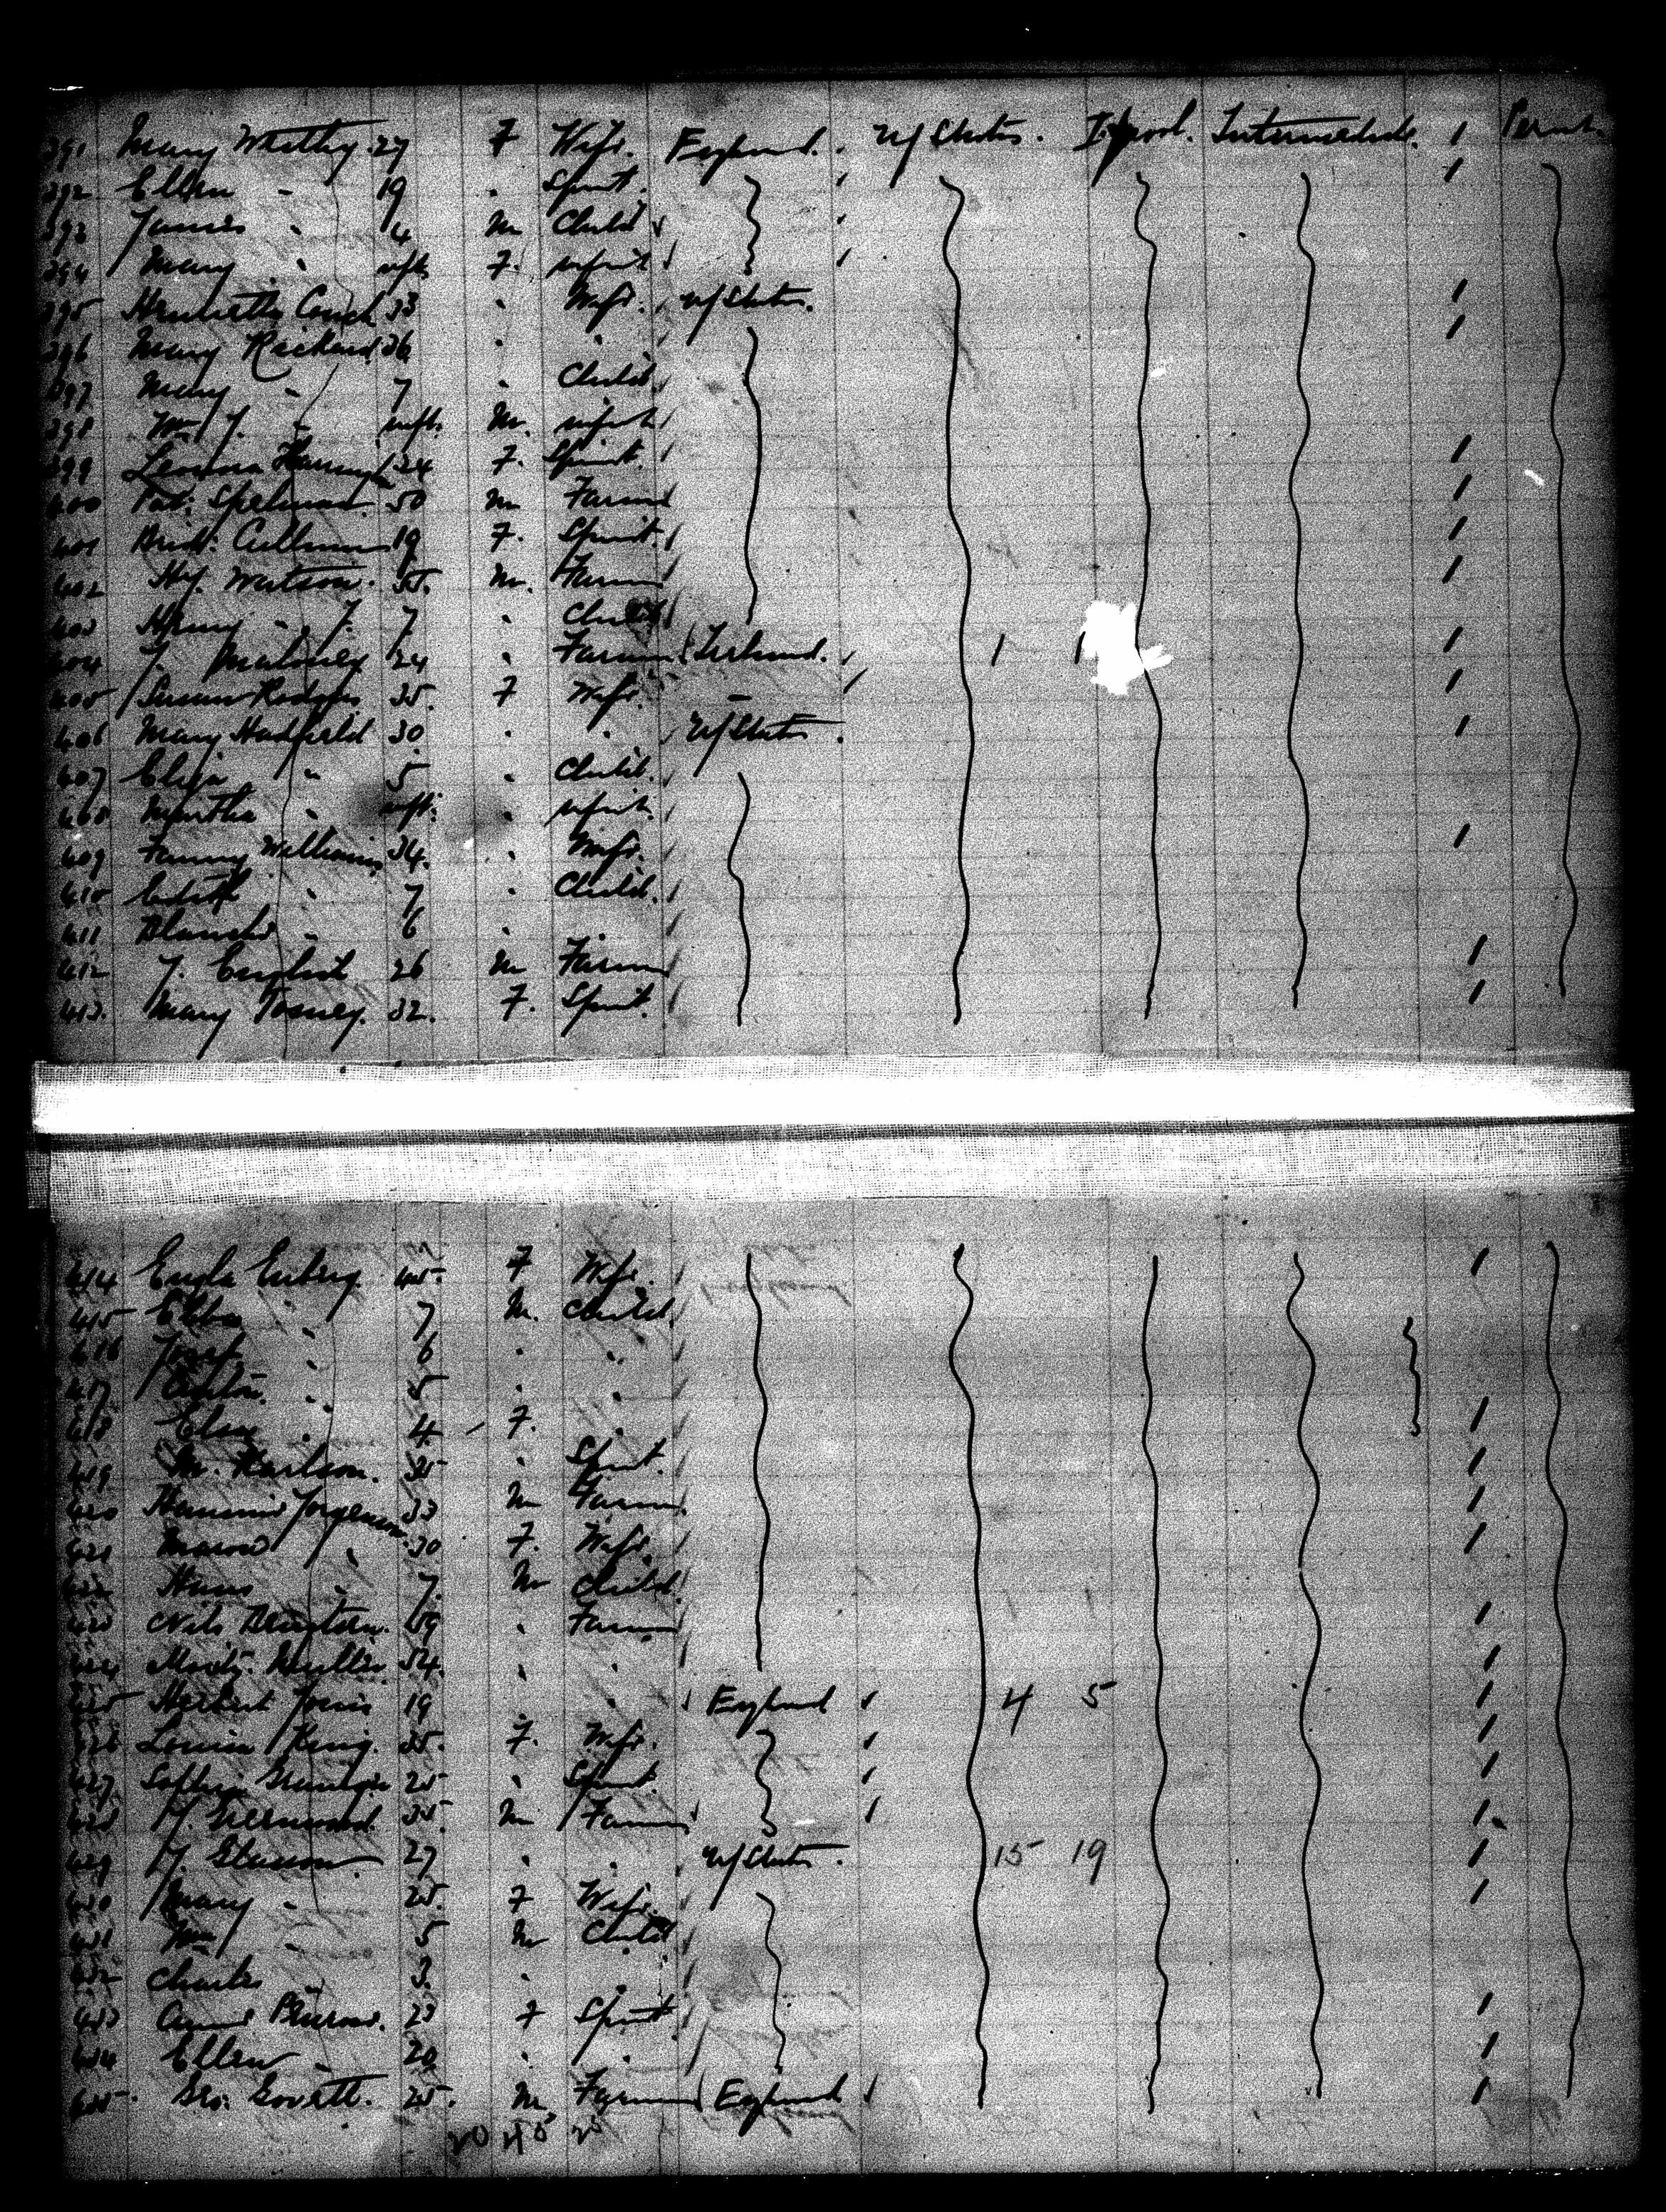 391 Mary 27 F Wife. England. U/States. L'pool. Intermediate. 1
392 Ellen " 19 " Spinst. 1
393 James " 4 M Child
394 Mary " inft. F. infant
395 Henrietta Couch 33 " Wife. U/States. 1
396 Mary Richard 36 " " 1
397 Mary " 7 " Child.
398 Wm J. " inft. M. infant
399 24 F. Spinst. 1
400 Pat. Spelman. 50 M Farmer 1
401 Brid. Cullinan 19 F. Spinst. 1
402 Hy. Watson. 35. M. Farmer 1
403 Henry " J. 7 " Child
404 J. Maloney 24 " Farmer Ireland. 1 1 1
405 Susan Rodgers 35. F Wife. " 1
406 Mary Hadfield 30. " " U/States. 1
407 Eliza " 5 " Child.
408 Martha " inft. " infant.
409 Fanny Williams 34. " Wife. 1
410 Edith " 7 " Child.
411 Blanche " 6 " "
412 J. English 26 M Farmer 1
413. Mary Tosney. 32. F. Spinst. 1
414 45. F Wife. 1
415 Ebba " 7 M. Child.
416 Josef " 6 " "
417 Anton. " 5 " "
418 Elsa " 4 F. " 1
419 M. Karlson. 35 " Spinst. 1
420 Jorgenson 33 M Farmer 1
421 " 30 F. Wife. 1
422 Hans " 7. M Child
423 Nils 59 " Farmer 1
424 54. " " 1
425 Herbert 19 " " England 4 5 1
426 Louisa King. 35. F. Wife. 1
427 25 " Spinst. 1
428 J. Greenwood. 35. M Farmer 1
429 J. 27 " " U/States. 15 19 1
430 Mary " 25. F Wife. 1
431 Wm " 5 M Child
432 Charles " 3. " "
433 Annie 23 F Spinst 1
434 Ellen " 20 " " 1
435. Geo. Govett. 25. M. Farmer England 1